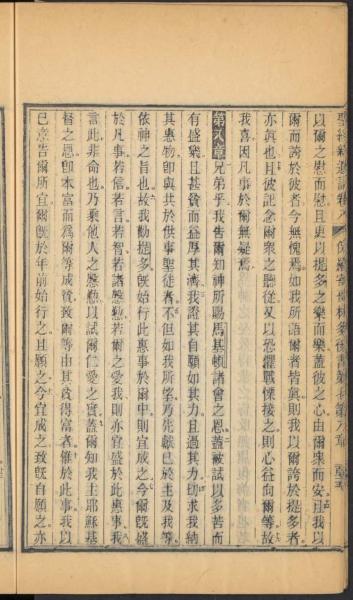 以爾之慰而慰且更以提多之樂而樂蓋彼之心由爾衆而安且我以
爾而誇於彼者今無愧焉如我所語爾者皆眞則我以爾誇於提多者
亦眞也且彼記念爾衆之聽從又以恐懼戰慄接之則心益向爾等故
我喜因凡事於爾無疑焉
第八章兄弟乎我告爾知神所賜馬基頓諸會之恩蓋被試以多苦而
有盛樂且甚貧而益厚其濟我證其自願如其力且過其力切求我納
其惠物卽與共於供事聖徒者不但如我所望乃先獻已於主及我等
依神之旨也故我勸提多旣始行此惠事於爾中則宜成之今爾旣盛
於凡事若信若言若智若諸慇懃若爾之愛我則亦宜盛於此惠事我
言此非命也乃乘他人之慇懃以試爾仁愛之實蓋爾知我主耶穌基
督之恩卽本富而爲爾等成貧致爾等由其貧得富者維於此事我以
已意告爾所宜爾旣於年前始行之且願之今宜成之致旣自願之亦